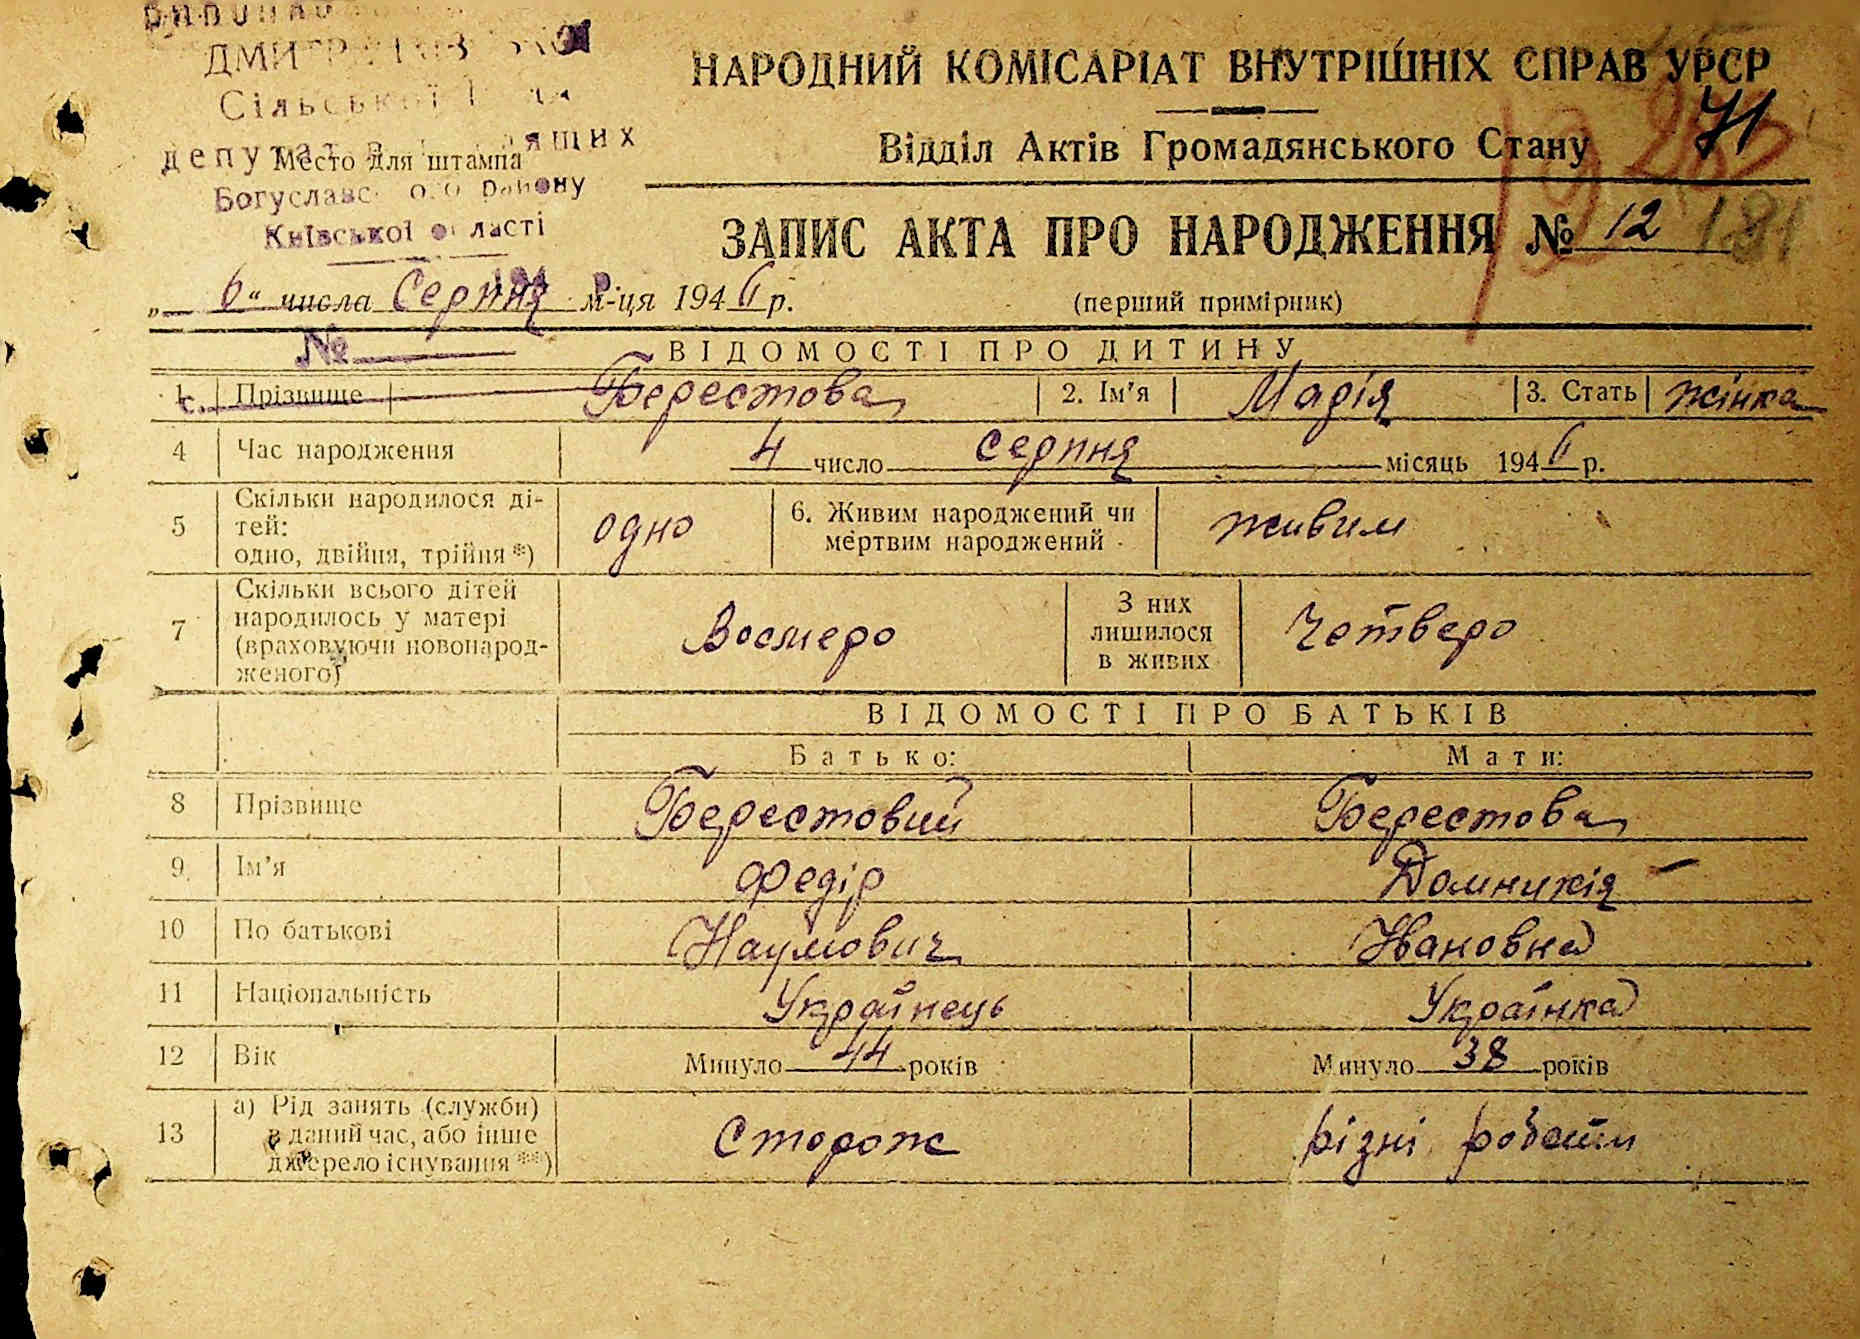 Сільської
депутатів трудящих
Место для штампа
Богуславського району
Київської області
НАРОДНИЙ КОМІСАРІАТ ВНУТРІШНІХ СПРАВ УРСР
71
Відділ Актів Громадянського Стану
ЗАПИС АКТА ПРО НАРОДЖЕННЯ № 12 181
„ 6 “ числа Серпня м-ця 194 р.
(перший примірник)
№
ВІДОМОСТІ ПРО ДИТИНУ
1. Прізвище Берестова 2. Ім'я Марія 3. Стать жінка
4 Час народження 4 число серпня місяць 194 р.
5 Скільки народилося ді-
тей:
одно, двійня, трійня *) одно 6. Живим народжений чи
мертвим народжений живим
7 Скільки всього дітей
народилось у матері
(враховуючи новонарод-
женого) Восмеро З них
лишилося
в живих Четверо
ВІДОМОСТІ ПРО БАТЬКІВ
Батько: Мати:
8 Прізвище Берестовий Берестова
9 Ім'я Федір Домникія
10 По батькові Наумович Ивановна
11 Національність Українець Українка
12 Вік Минуло 44 років Минуло 38 років
13 а) Рід занять (служби)
в даний час, або інше
джерело існування **) Сторож різні роботи